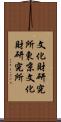 文化財研究
所東京文化
財研究所